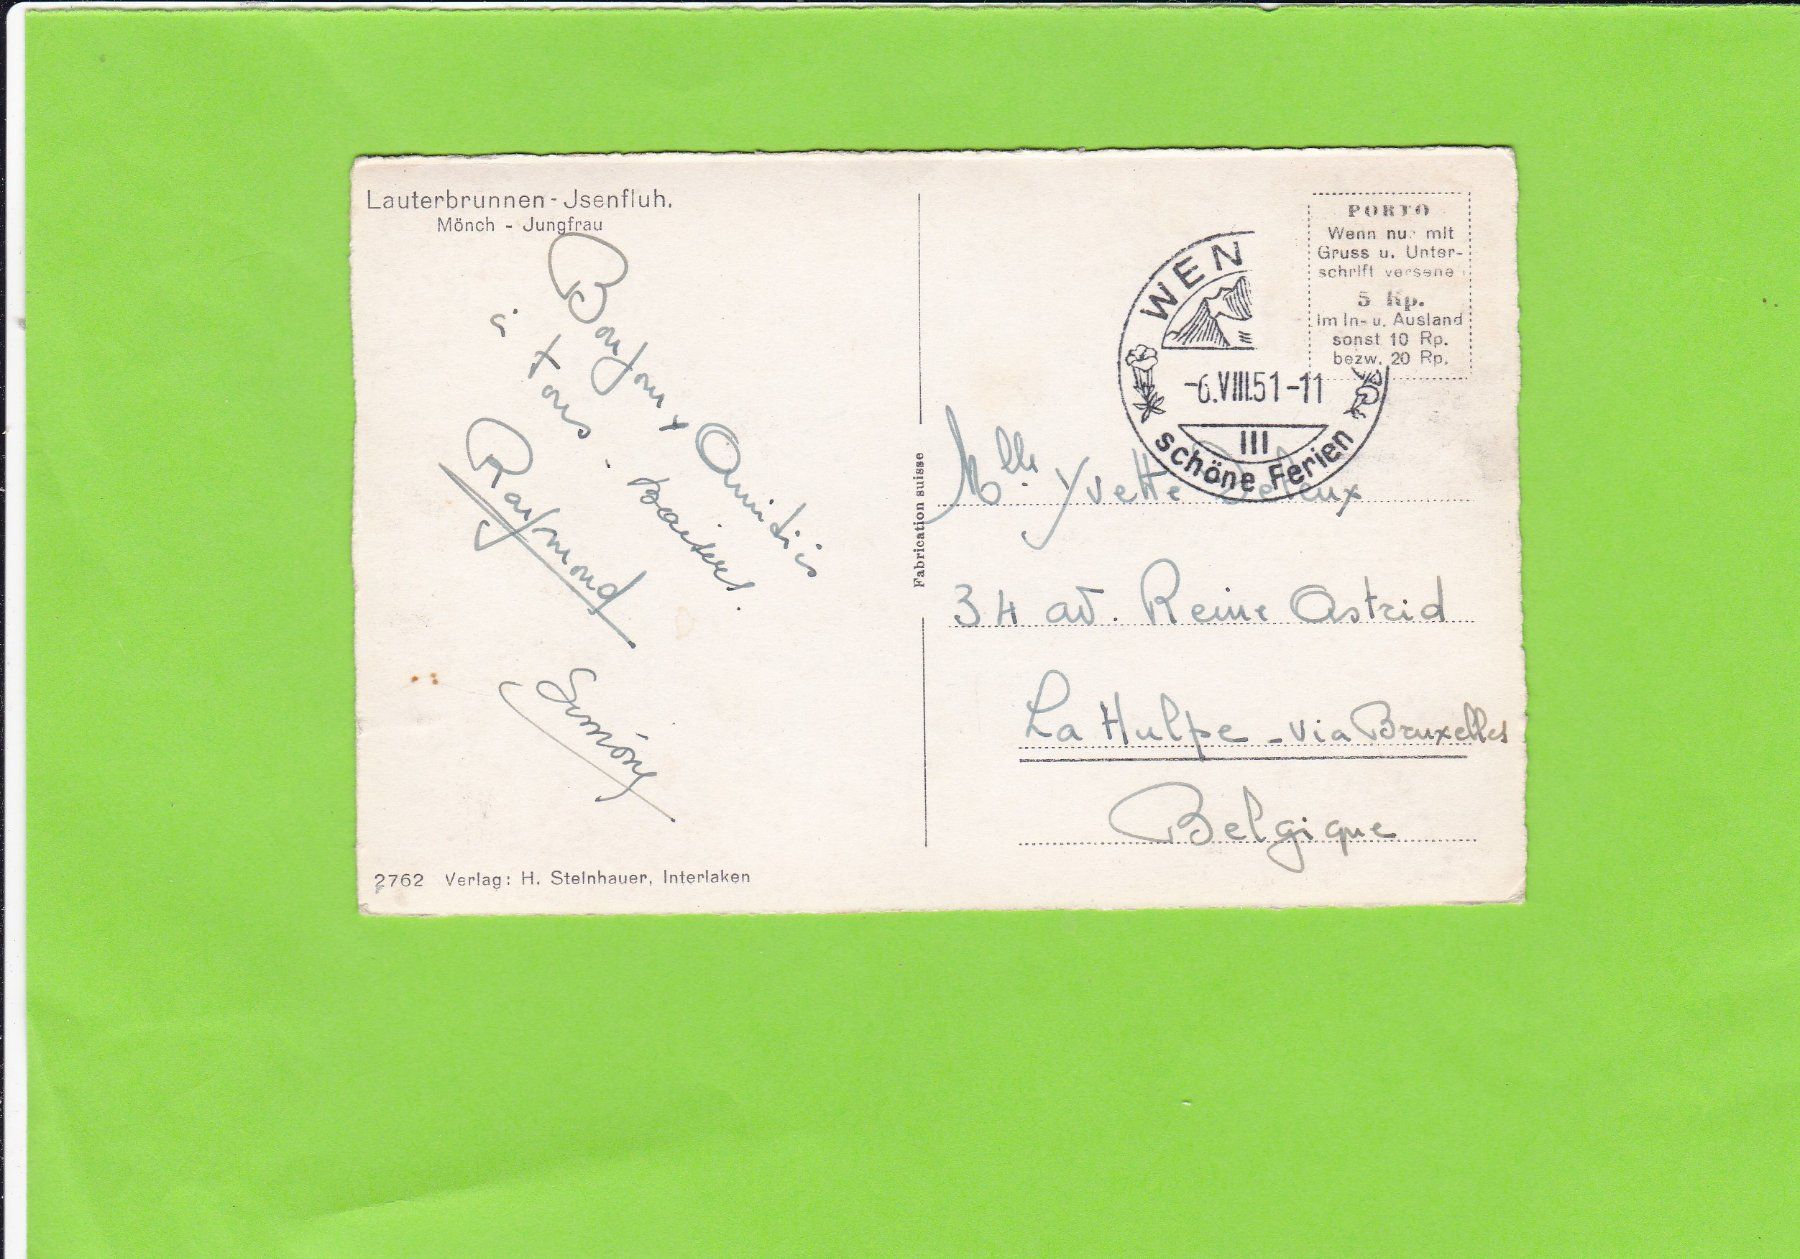 Lauterbrunnen - Jsenfluh.
Mönch - Jungfrau
Bonjour + Amitiés
à tous. Baisers.
Raymond
Simone
2762 Verlag: H. Steinhauer, Interlaken
Fabrication suisse
PORTO
Wenn nur mit
Gruss u. Unter-
schrift versene
5 Rp.
im In- u. Ausland
sonst 10 Rp.
bezw. 20 Rp.
WEN
-6.VIII.51-11
III
schöne Ferien
Mlle. Yvette
34 av. Reine Astrid
La Hulpe - via Bruxelles
Belgique